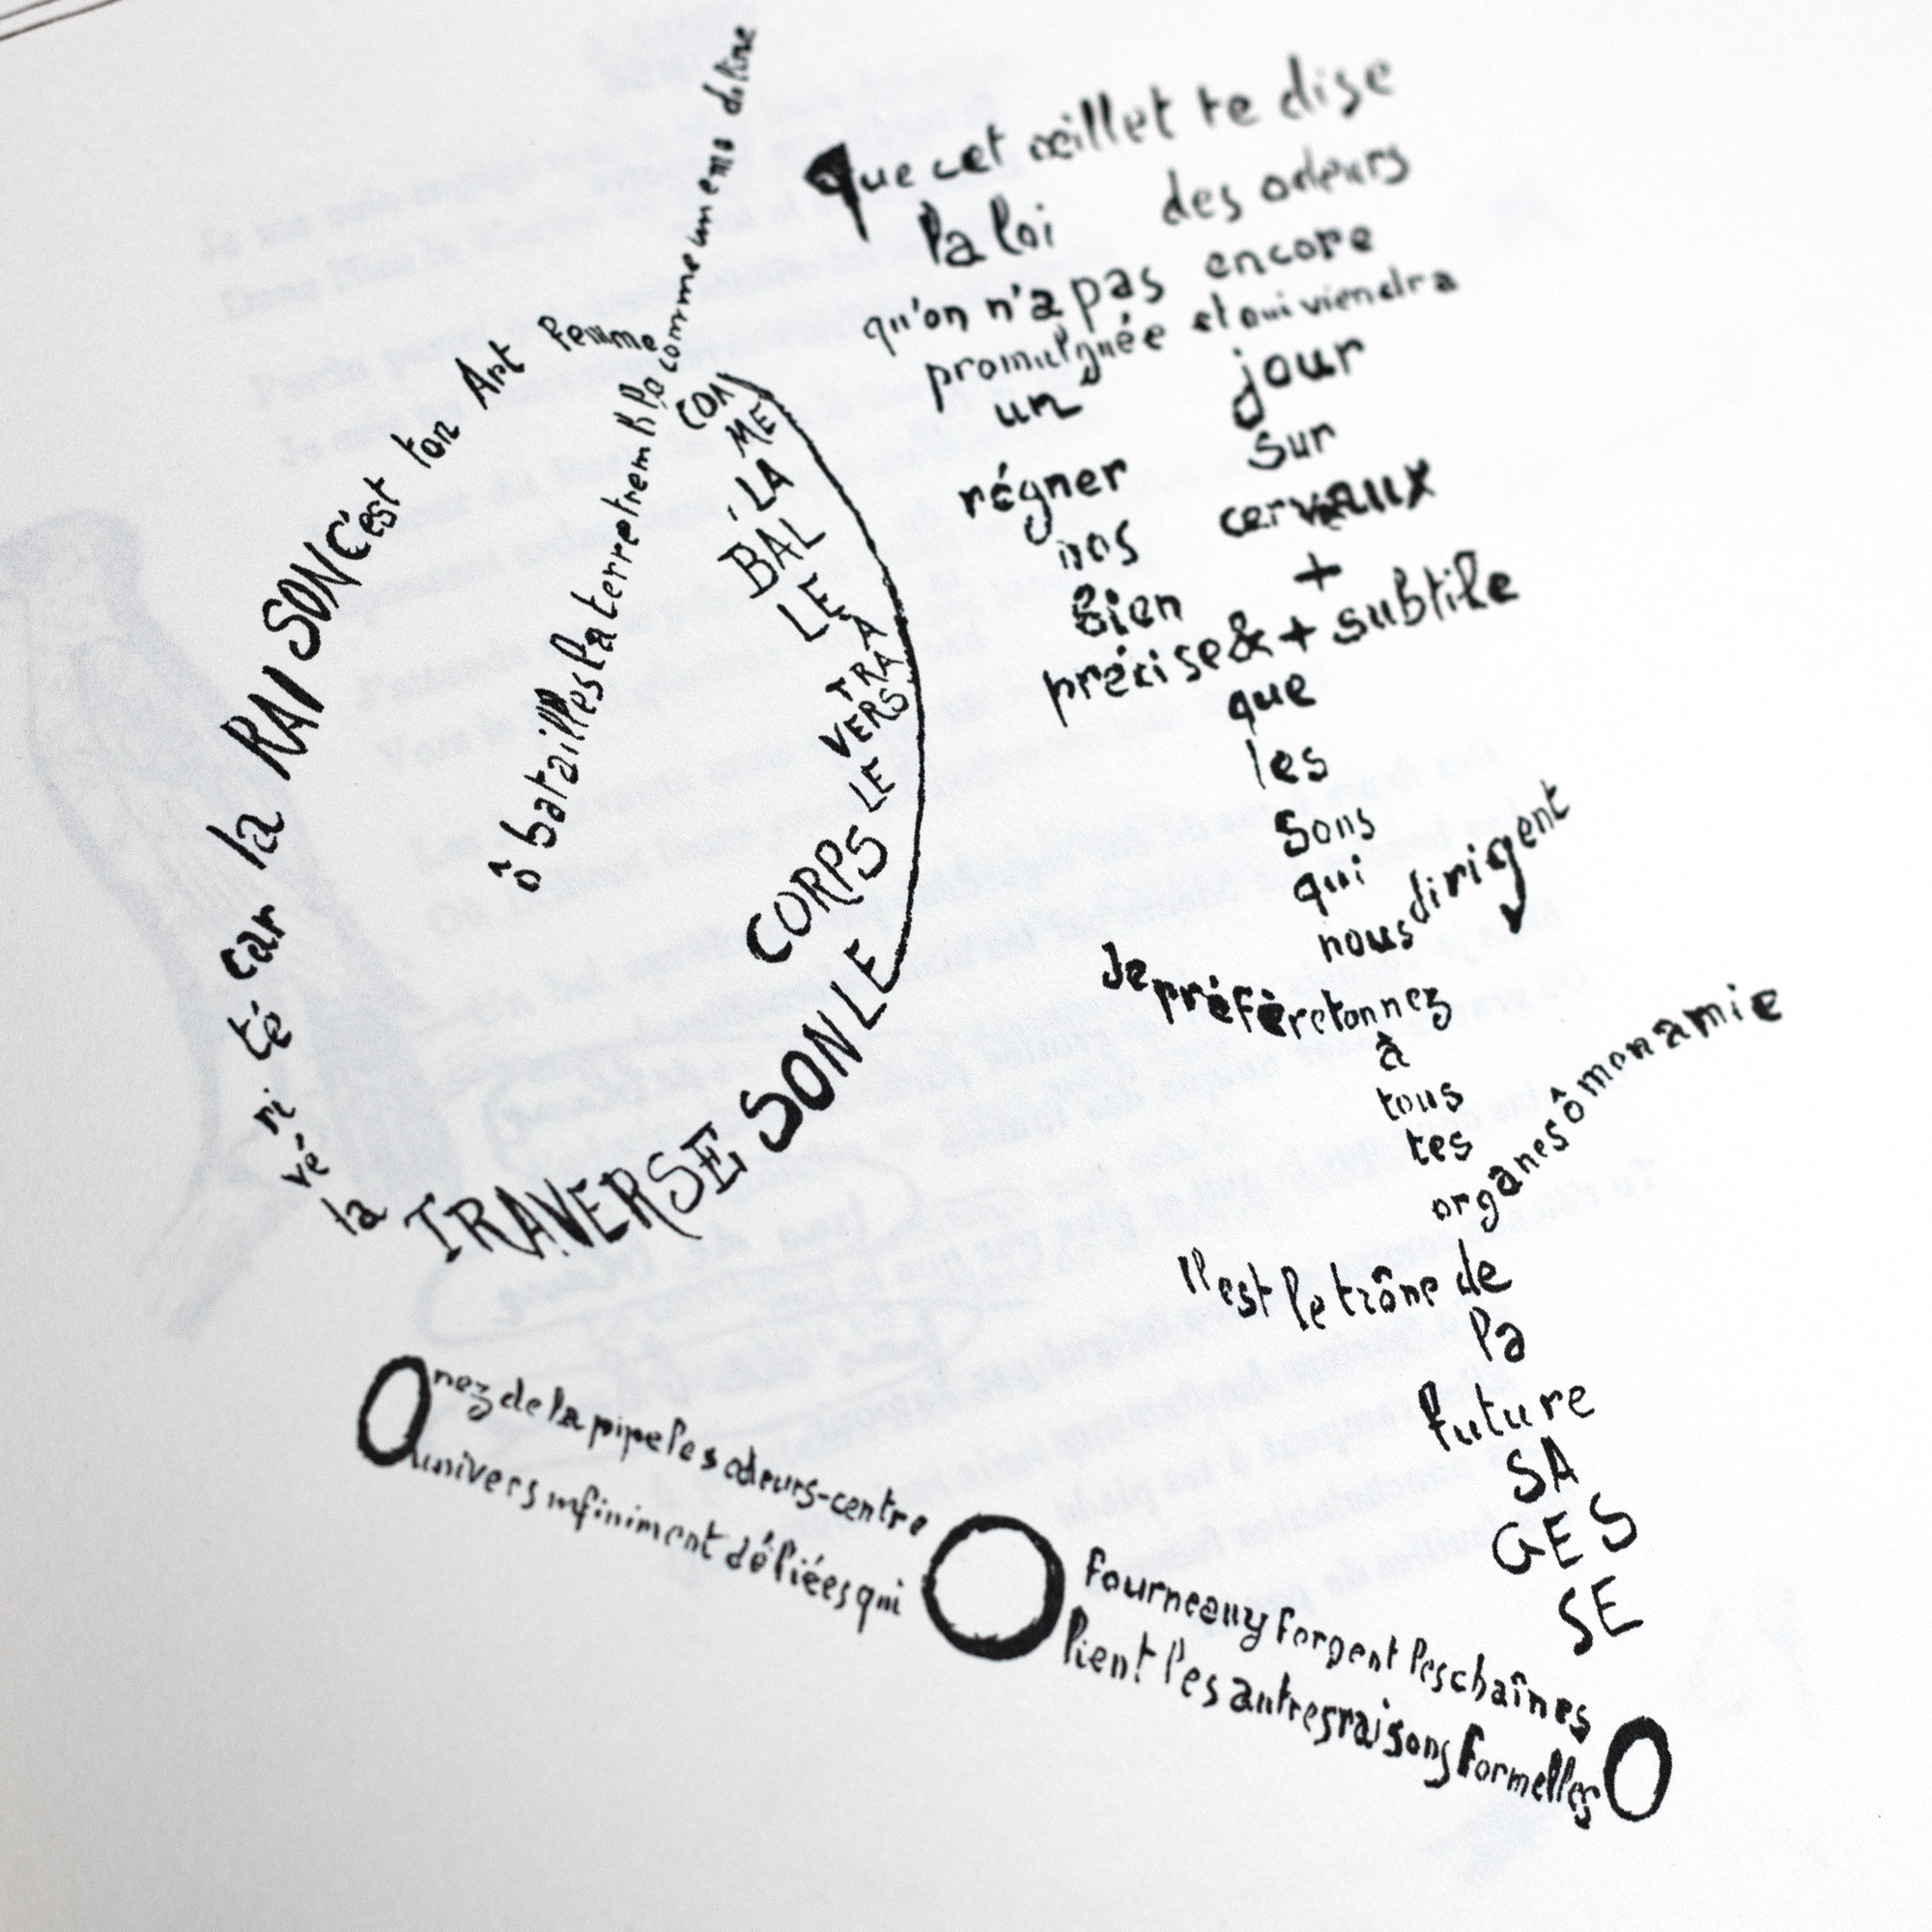 ô batailles la terre tremble comme une mandoline
COM
ME
LA
BAL
LE
À
TRA
VERS
LE
CORPS
LE
SON
TRAVERSE
la
vé
ri
té
car
la
RAISON
C'est
ton
Art
femme
que cet œillet te dise
la loi des odeurs
qu'on n'a pas encore
promulguée et qui viendra
un jour
régner sur
nos cerveaux
bien +
précise & + subtile
que
les
sons
qui
nous dirigent
Je préfère ton nez
à
tous
tes
organes ô mon amie
Il est le trône de
la
future
SA
GES
SE
O nez de la pipe les odeurs-centre
univers infiniment déliées qui
O fourneau y forgent les chaînes
lient les autres raisons formelles O